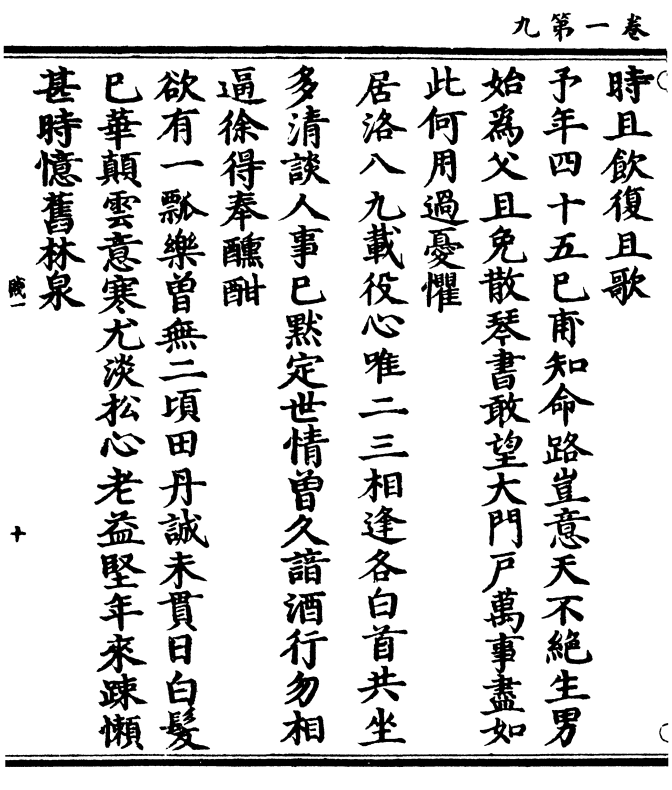 卷一第九
時且飲復且歌
予年四十五已甫知命路豈意天不絕生男
始為父且免散琴書敢望大門戶萬事盡如
此何用過憂懼
居洛八九載役心唯二三相逢各白首共坐
多清談人事已默定世情曾久諳酒行勿相
逼徐得奉醺酣
欲有一瓢樂曾無二頃田丹誠未貫日白髮
已華顛雲意寒尤淡松心老益堅年來踈懶
甚時憶舊林泉
賤一
十